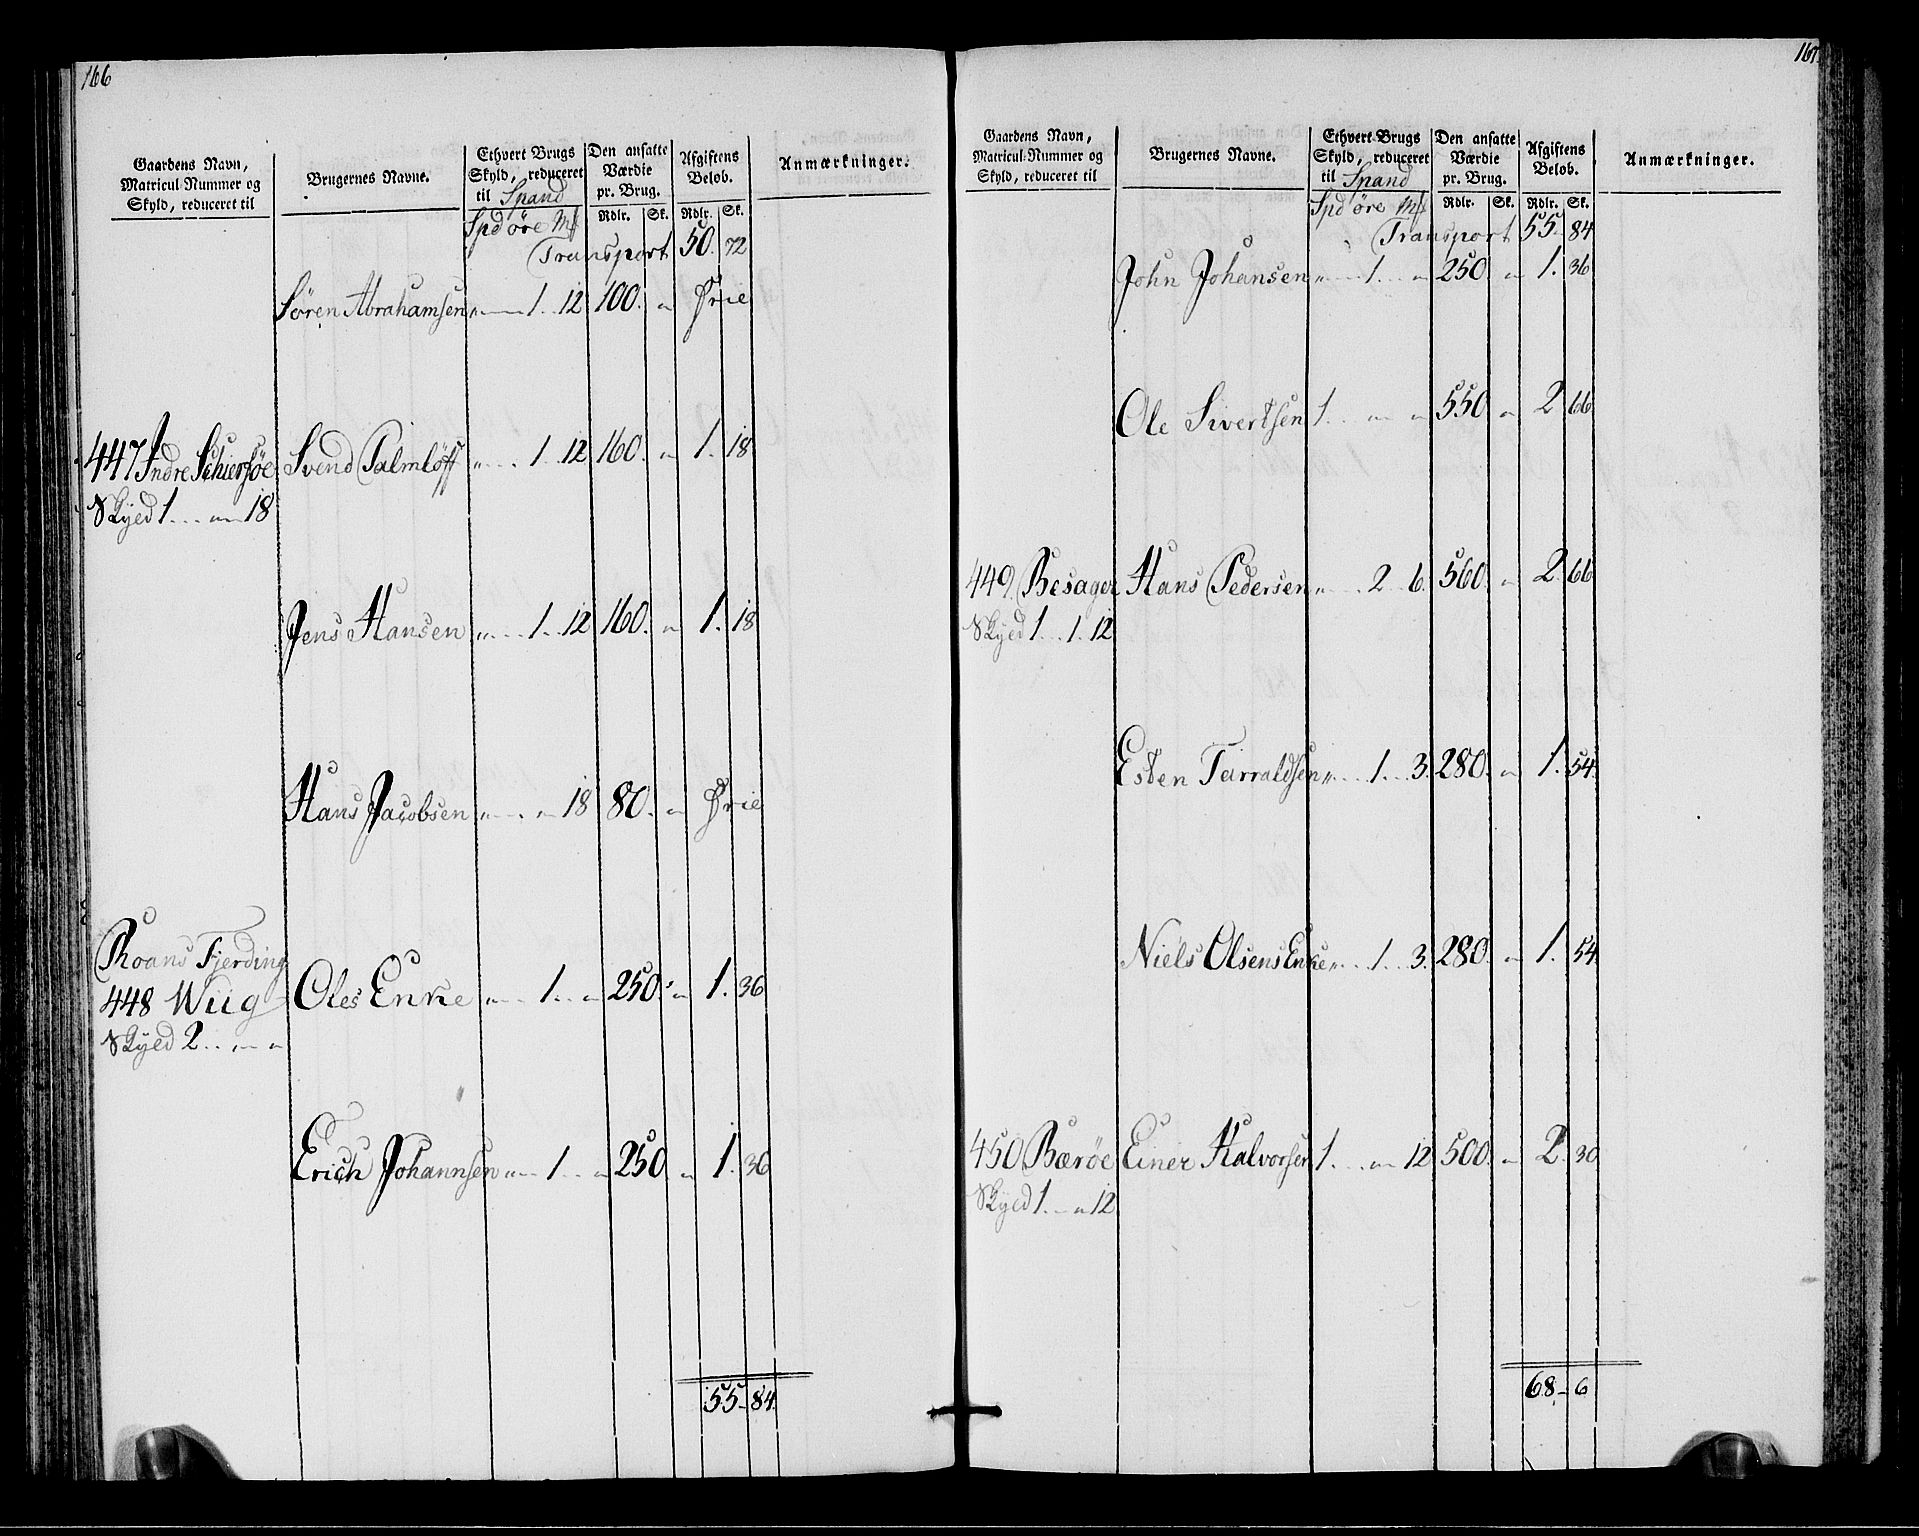 166
Gaardens Navn, Matricul-Nummer og Skyld, reduceret til
Brugernes Navne.
Ethvert Brugs Skyld, reduceret til Spand
Den ansatte Værdie pr. Brug.
Afgiftens Beløb.
Anmærkninger.
Spd øre Mk Rdlr. Sk. Rdlr. Sk.
Transport 50. 72
Søren Abrahamsen " 1. 12 100. " Frie
447 Indre Schiersøe Svend Palmløff " 1. 12 160. " 1. 18
Skyld 1 . . . " 18
Jens Hansen " 1. 12 160. " 1. 18
Hans Jacobsen " " 18 80. " Frie
Roans Fjerding
448 Wiig Oles Enke " 1. " 250. " 1. 36
Skyld 2 . . " "
Erich Johannsen " 1. " 250 " 1. 36
55 - 84.
167
Gaardens Navn, Matricul-Nummer og Skyld, reduceret til
Brugernes Navne.
Ethvert Brugs Skyld, reduceret til Spand
Den ansatte Værdie pr. Brug.
Afgiftens Beløb.
Anmærkninger.
Spd øre Mk Rdlr. Sk. Rdlr. Sk.
Transport 55. 84
John Johansen " 1. " 250. " 1. 36
Ole Sivertsen 1. " " 550. " 2 66
449. Besager Hans Pedersen " 2 6. 560. " 2. 66
Skyld 1 . . 1. 12
Esten Tarraldsen " 1. 3. 280. " 1. 54
Niels Olsens Enke " 1. 3. 280. " 1. 54
450 Bærøe Einer Halvorsen 1. " 12 500. " 2. 30
Skyld 1. " 12
68 - 6